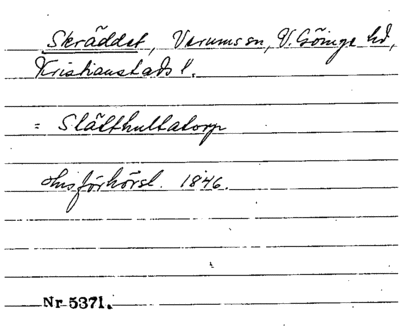 Skräddet, Verums sn, V. Göinge hd,
Kristianstads l.
= Slätthultatorp
Husförhörsl. 1846.
Nr 5371.